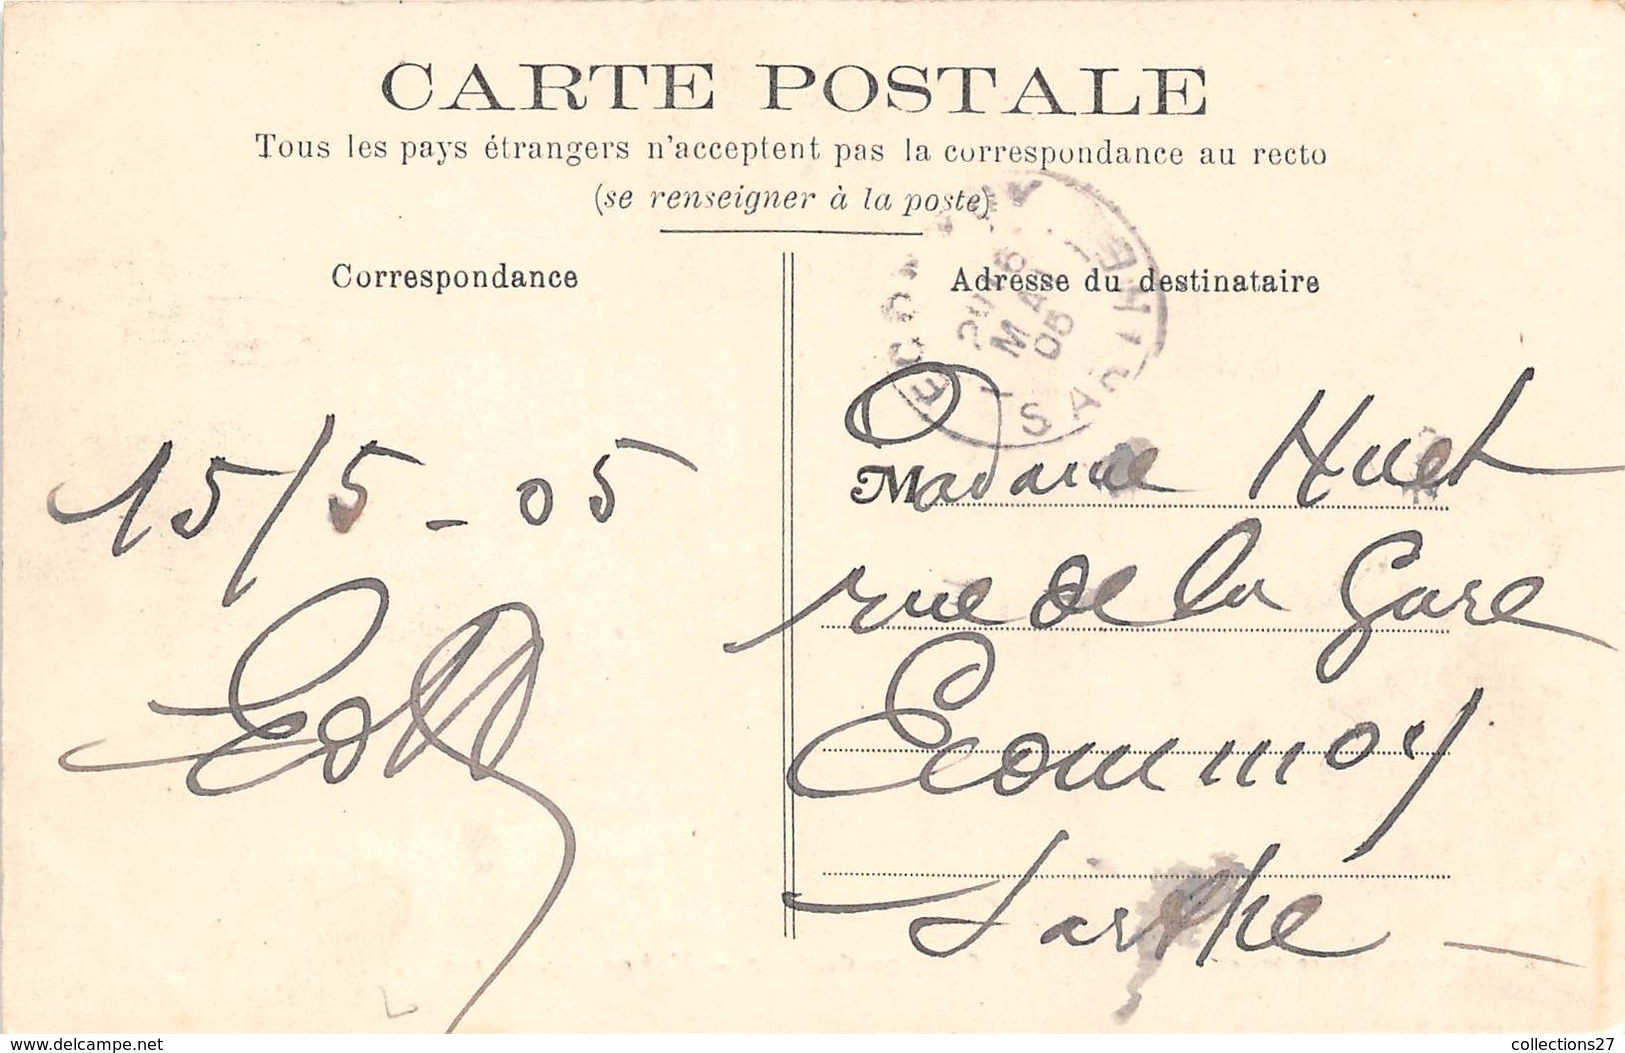 CARTE POSTALE
Tous les pays étrangers n'acceptent pas la correspondance au recto
(se renseigner à la poste)
Correspondance
15/5 - 05
Adresse du destinataire
Madame Huet
rue de la Gare
Ecommoy
Sarthe
MAI
05
SARTHE
www.delcampe.net
collections27